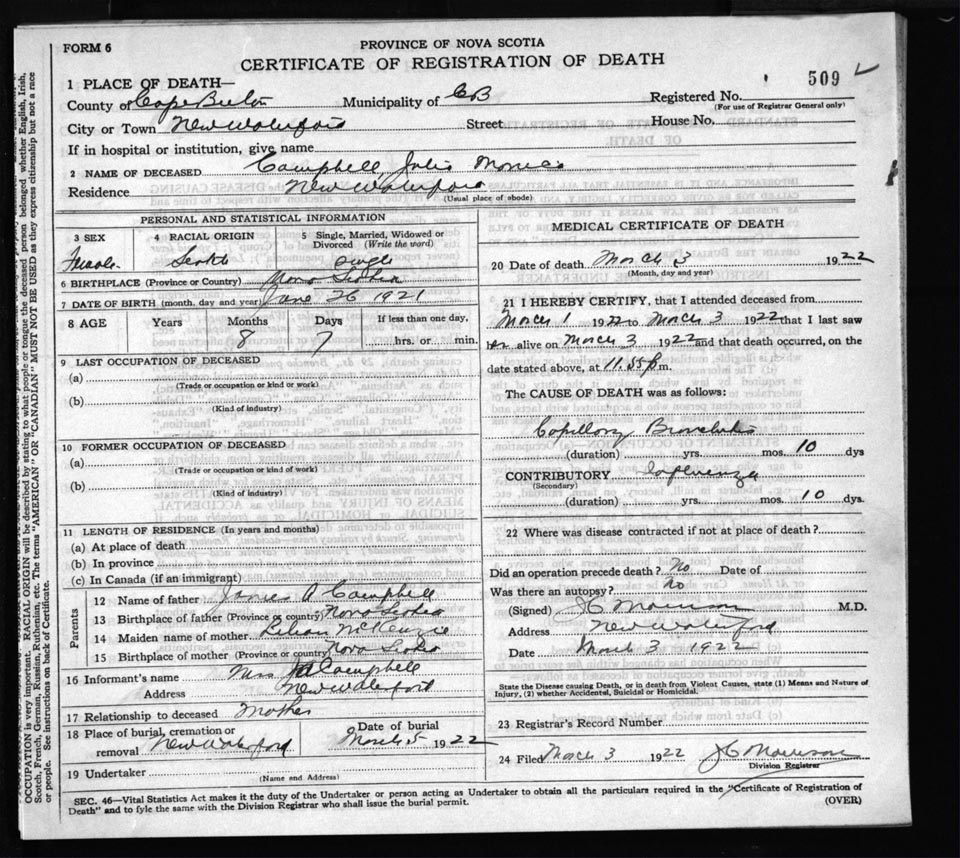 FORM 6
PROVINCE OF NOVA SCOTIA
CERTIFICATE OF REGISTRATION OF DEATH
509
1 PLACE OF DEATH—
County of Cape Breton Municipality of CB Registered No.
(For use of Registrar General only)
City or Town New Waterford Street House No.
If in hospital or institution, give name
2 NAME OF DECEASED Campbell, Julia Monica
Residence New Waterford
(Usual place of abode)
PERSONAL AND STATISTICAL INFORMATION
3 SEX 4 RACIAL ORIGIN 5 Single, Married, Widowed or Divorced (Write the word)
Female Scotch Single
6 BIRTHPLACE (Province or Country) Nova Scotia
7 DATE OF BIRTH (month, day and year) June 26 1921
8 AGE Years Months Days If less than one day,
8 7 hrs. or min.
9 LAST OCCUPATION OF DECEASED
(a)
(Trade or occupation or kind or work)
(b)
(Kind of industry)
10 FORMER OCCUPATION OF DECEASED
(a)
(Trade or occupation or kind of work)
(b)
(Kind of industry)
11 LENGTH OF RESIDENCE (In years and months)
(a) At place of death
(b) In province
(c) In Canada (if an immigrant)
Parents
12 Name of father James A Campbell
13 Birthplace of father (Province or country) Nova Scotia
14 Maiden name of mother Lilian McKenzie
15 Birthplace of mother (Province or country) Nova Scotia
16 Informant's name Mrs JA Campbell
Address New Waterford
17 Relationship to deceased Mother
18 Place of burial, cremation or removal New Waterford Date of burial March 5 1922
19 Undertaker
(Name and Address)
MEDICAL CERTIFICATE OF DEATH
20 Date of death March 3 1922
(Month, day and year)
21 I HEREBY CERTIFY, that I attended deceased from
March 1 1922 to March 3 1922 that I last saw
her alive on March 3 1922 and that death occurred, on the
date stated above, at 11.55 p m.
The CAUSE OF DEATH was as follows:
Capillary Bronchitis
(duration) yrs. mos. 10 dys
CONTRIBUTORY Influenza
(Secondary)
(duration) yrs. mos. 10 dys.
22 Where was disease contracted if not at place of death?
Did an operation precede death? No Date of
Was there an autopsy? No
(Signed) JC Morrison M.D.
Address New Waterford
Date March 3 1922
State the Disease causing Death, or in death from Violent Causes, state (1) Means and Nature of
Injury, (2) whether Accidental, Suicidal or Homicidal.
23 Registrar's Record Number
24 Filed March 3 1922 JC Morrison
Division Registrar
SEC. 46—Vital Statistics Act makes it the duty of the Undertaker or person acting as Undertaker to obtain all the particulars required in the "Certificate of Registration of
Death" and to fyle the same with the Division Registrar who shall issue the burial permit.
(OVER)
OCCUPATION is very important. RACIAL ORIGIN will be described by stating to what people or tongue the deceased person belonged whether English, Irish,
Scotch, French, German, Russian, Ruthenian, etc. The terms "AMERICAN" OR "CANADIAN" MUST NOT BE USED as they express citizenship but not a race
or people. See instructions on back of Certificate.